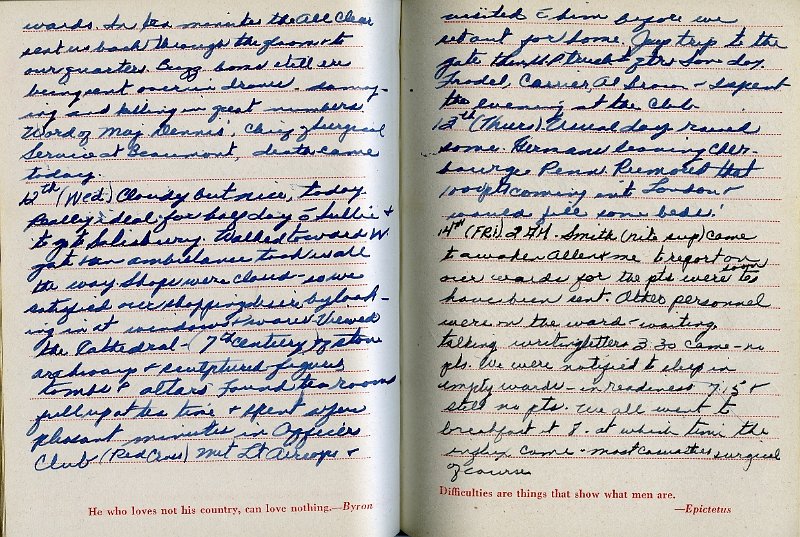 wards. In ten minutes the All Clear
sent us back through the gloom to
our quarters. Buzz bombs still are
being sent over in droves - damag-
ing and killing in great numbers
Word of Maj. Dennis', Chief of Surgical
Service at Beaumont, death came
today.
12th (Wed.) Cloudy but nice, today.
Really ideal for half day c̄ Lullie +
to go to Salisbury. Walked toward W.
gate + an ambulance took us all
the way. Shops were closed - so we
satisfied our shopping desire by look-
ing in at windows + wares. Viewed
the Cathedral - (7th century) of stone
archways + sculptured figures
tombs + altars. Found tea rooms
full up at tea time + spent a few
pleasant minutes in Officers
Club (Red Cross) Met Lt. +
visited c̄ him before we
set out for home. Jeep trip to the
gate then truck to qtrs. Son day.
Carrier, Al Brown + I spent
the evening at the Club
13th (Thur.) Usual day rained
some. Germans leaving Cher-
bourg Penn. Rumored that
100 pts coming out London +
would fill some beds!
14th (FRI) 2 A.M. Smith (nite sup) came
to awaken Allen + me to report on
our wards for the pts were some to
have been sent. Other personnel
were on the ward - waiting,
talking writing letters 3:30 came - no
pts. We were notified to sleep in
empty wards - in readiness 7:15 +
still no pts. We all went to
breakfast + 7. at which time the
came - most casualties surgical
of course
He who loves not his country, can love nothing.—Byron
Difficulties are things that show what men are.
—Epictetus